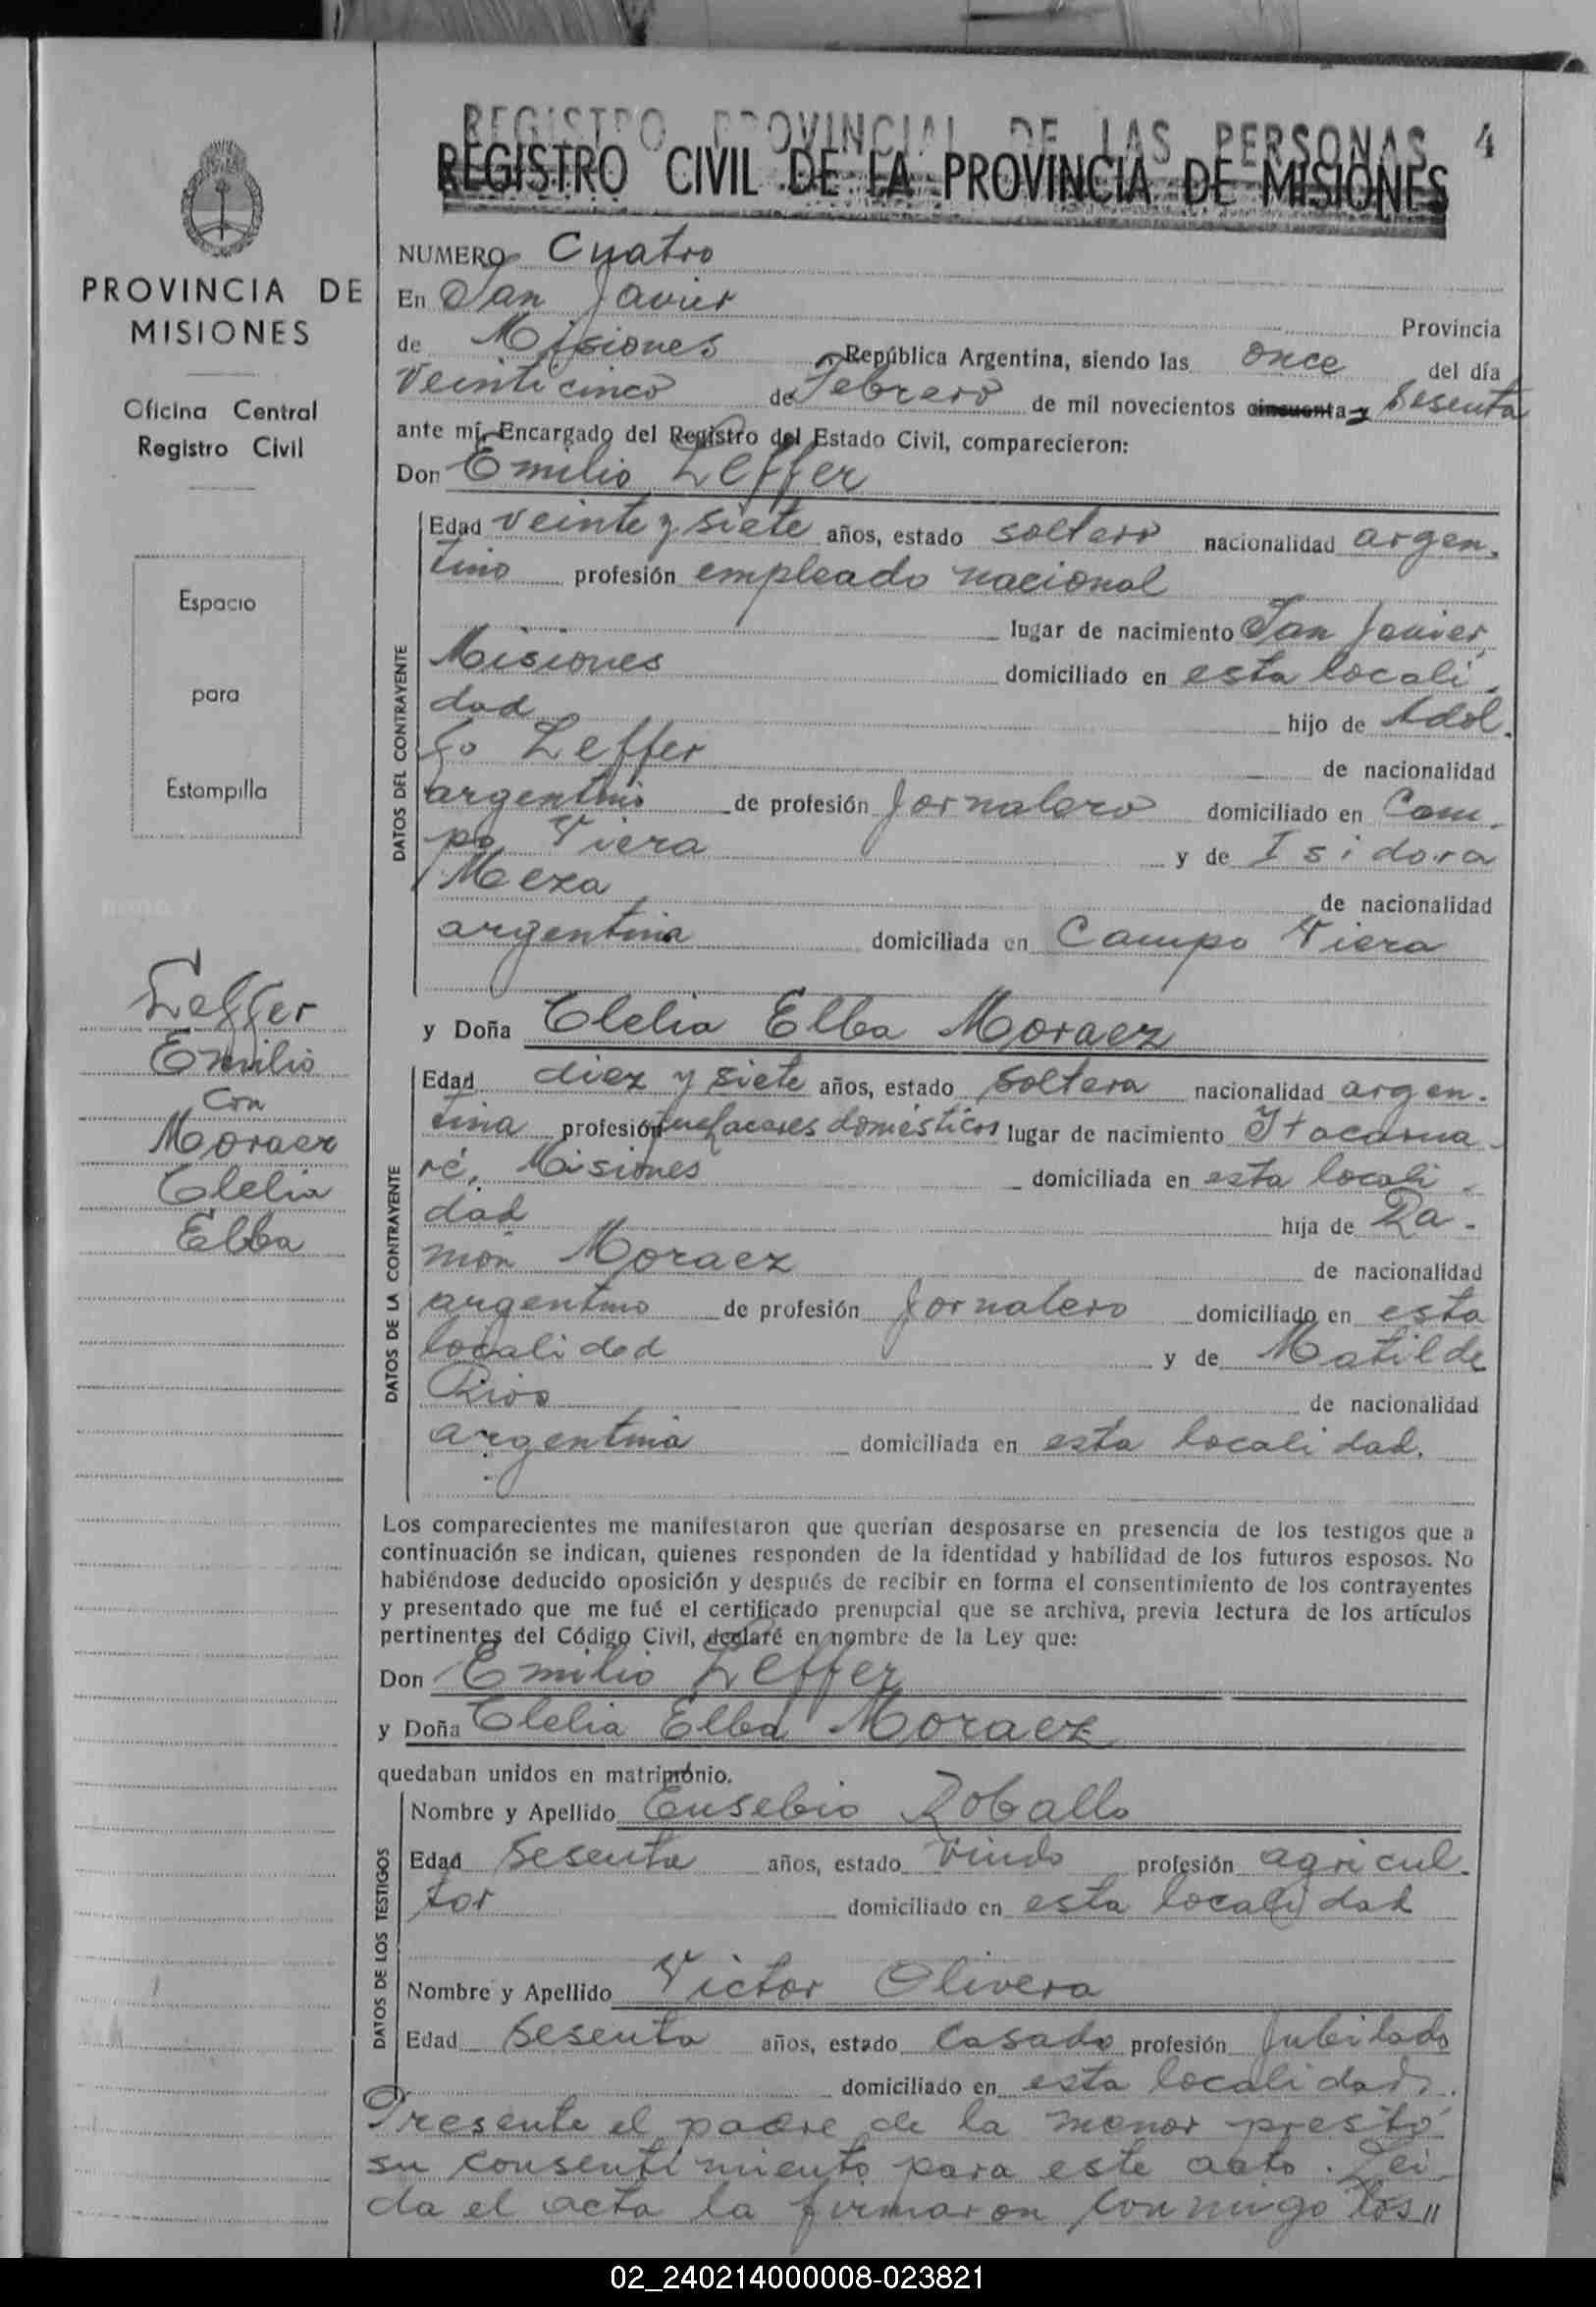 REGISTRO PROVINCIAL DE LAS PERSONAS 4
REGISTRO CIVIL DE LA PROVINCIA DE MISIONES
PROVINCIA DE
MISIONES
Oficina Central
Registro Civil
Espacio
para
Estampilla
Leffer
Emilio
Con
Moraez
Clelia
Elba
NUMERO Cuatro
En San Javier Provincia
de Misiones República Argentina, siendo las once del día
veinticinco de Febrero de mil novecientos cincuenta y Sesenta
ante mí, Encargado del Registro del Estado Civil, comparecieron:
Don Emilio Leffer
DATOS DEL CONTRAYENTE
Edad veinte y siete años, estado soltero nacionalidad argen-
tino profesión empleado nacional
lugar de nacimiento San Javier,
Misiones domiciliado en esta locali-
dad hijo de Adol-
fo Leffer de nacionalidad
argentino de profesión Jornalero domiciliado en Cam-
po Viera y de Isidora
Meza de nacionalidad
argentina domiciliada en Campo Viera
y Doña Clelia Elba Moraez
DATOS DE LA CONTRAYENTE
Edad diez y siete años, estado soltera nacionalidad argen-
tina profesión quehaceres domésticos lugar de nacimiento Itacarua-
ré, Misiones domiciliada en esta locali-
dad hija de Ra-
món Moraez de nacionalidad
argentino de profesión Jornalero domiciliado en esta
localidad y de Matilde
Rios de nacionalidad
argentina domiciliada en esta localidad.
Los comparecientes me manifestaron que querían desposarse en presencia de los testigos que a
continuación se indican, quienes responden de la identidad y habilidad de los futuros esposos. No
habiéndose deducido oposición y después de recibir en forma el consentimiento de los contrayentes
y presentado que me fué el certificado prenupcial que se archiva, previa lectura de los artículos
pertinentes del Código Civil, declaré en nombre de la Ley que:
Don Emilio Leffer
y Doña Clelia Elba Moraez
quedaban unidos en matrimonio.
DATOS DE LOS TESTIGOS
Nombre y Apellido Eusebio Roballo
Edad Sesenta años, estado viudo profesión agricul-
tor domiciliado en esta localidad
Nombre y Apellido Victor Olivera
Edad Sesenta años, estado Casado profesión Jubilado
domiciliado en esta localidad.
Presente el padre de la menor prestó
su consentimiento para este acto. Leí-
da el acta la firmaron conmigo los"
02_240214000008-023821